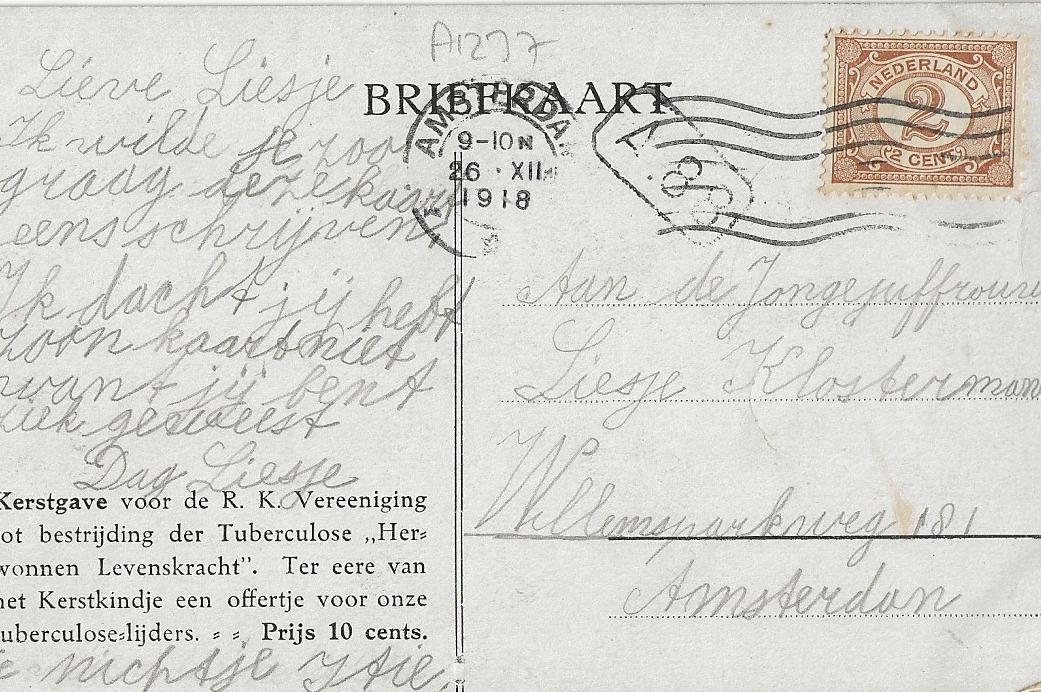 A1277
BRIEFKAART
Lieve Liesje
Ik wilde je zoo
graag deze kaart
eens schrijven,
Ik dacht jij hebt
zoon kaart niet
want jij bent
ziek geweest
Dag Liesje
Kerstgave voor de R. K. Vereeniging
ot bestrijding der Tuberculose „Her=
wonnen Levenskracht”. Ter eere van
het Kerstkindje een offertje voor onze
uberculose=lijders. = = Prijs 10 cents.
je nichtje
AMSTERDA
9-10 N
26 · XII
1918
NEDERLAND
2
2 CENT
Aan de Jongejuffrouw
Liesje Klostermann
Willemsparkweg 181
Amsterdam